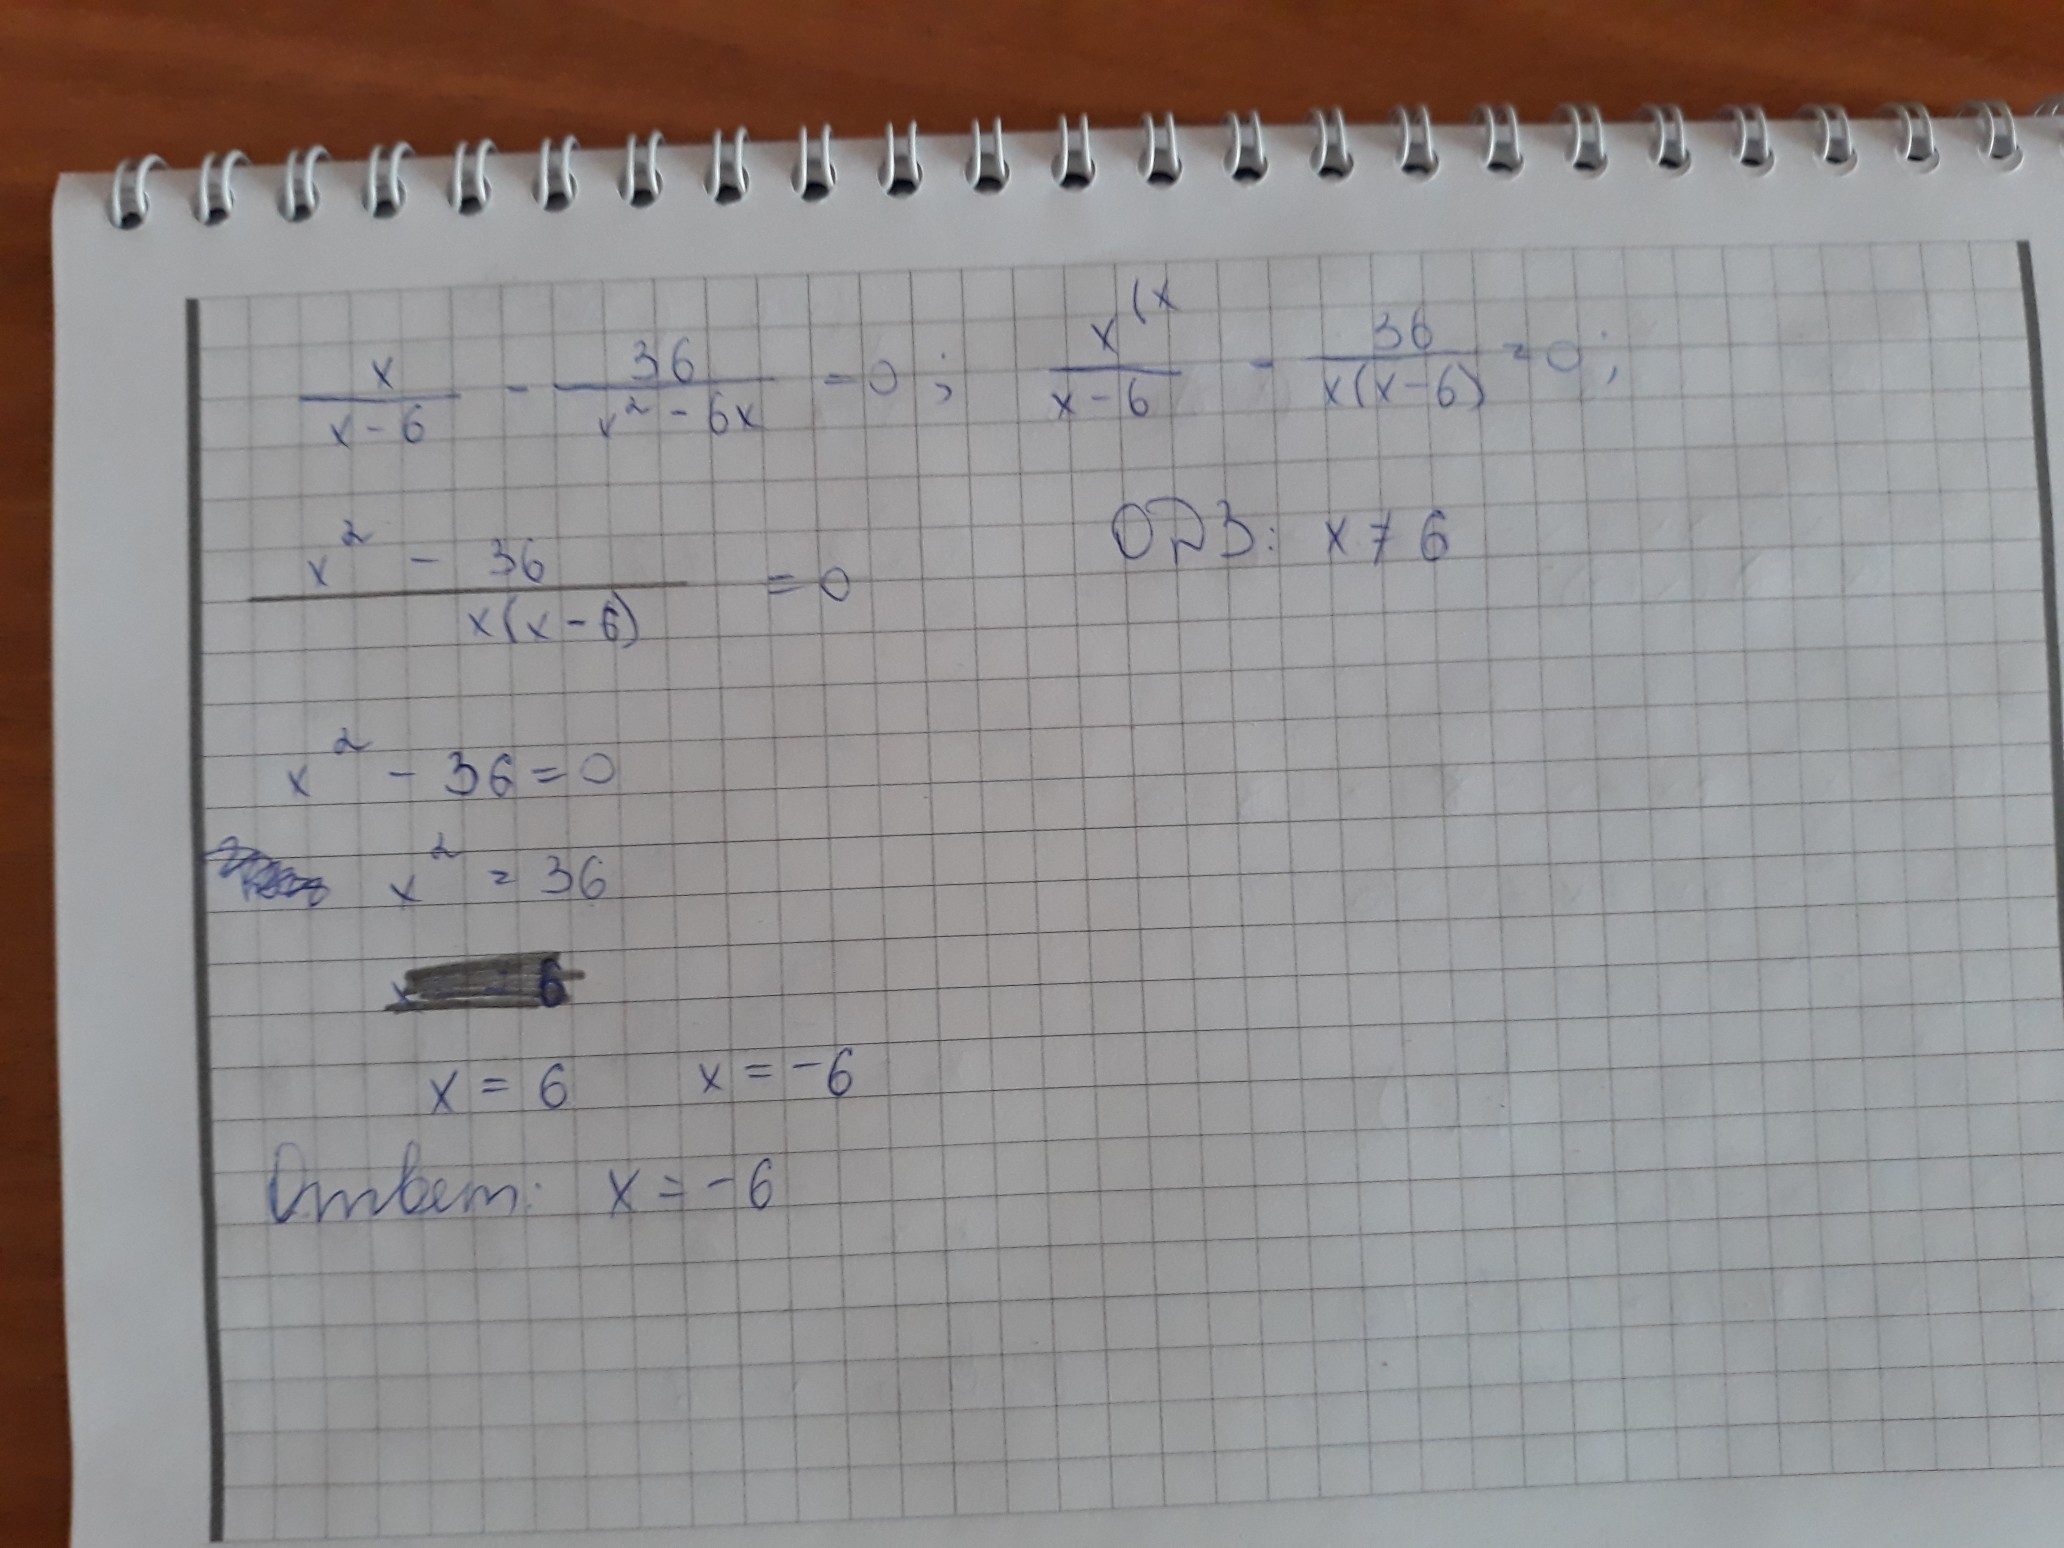 x/(x-6) - 36/(x²-6x) = 0; x^(x/(x-6) - 36/(x(x-6)) = 0;
(x² - 36)/(x(x-6)) = 0 ОДЗ: x ≠ 6
x² - 36 = 0
x² = 36
x = 6 x = -6
Ответ: x = -6